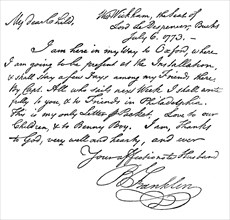 My dear Child,
W. Wickham, the Seat of
Lord Le Despencer, Bucks
July 6. 1773.
I am here in my Way to Oxford, where
I am going to be present at the Installation,
& shall stay a few Days among my Friends there.
By Capt. All who sails next Week I shall write
fully to you, & to Friends in Philadelphia.
This is my only Letter Packet. Love to our
Children, & to Benny Boy. I am, Thanks
to God, very well and hearty, and ever
Your affectionate Husband
B Franklin